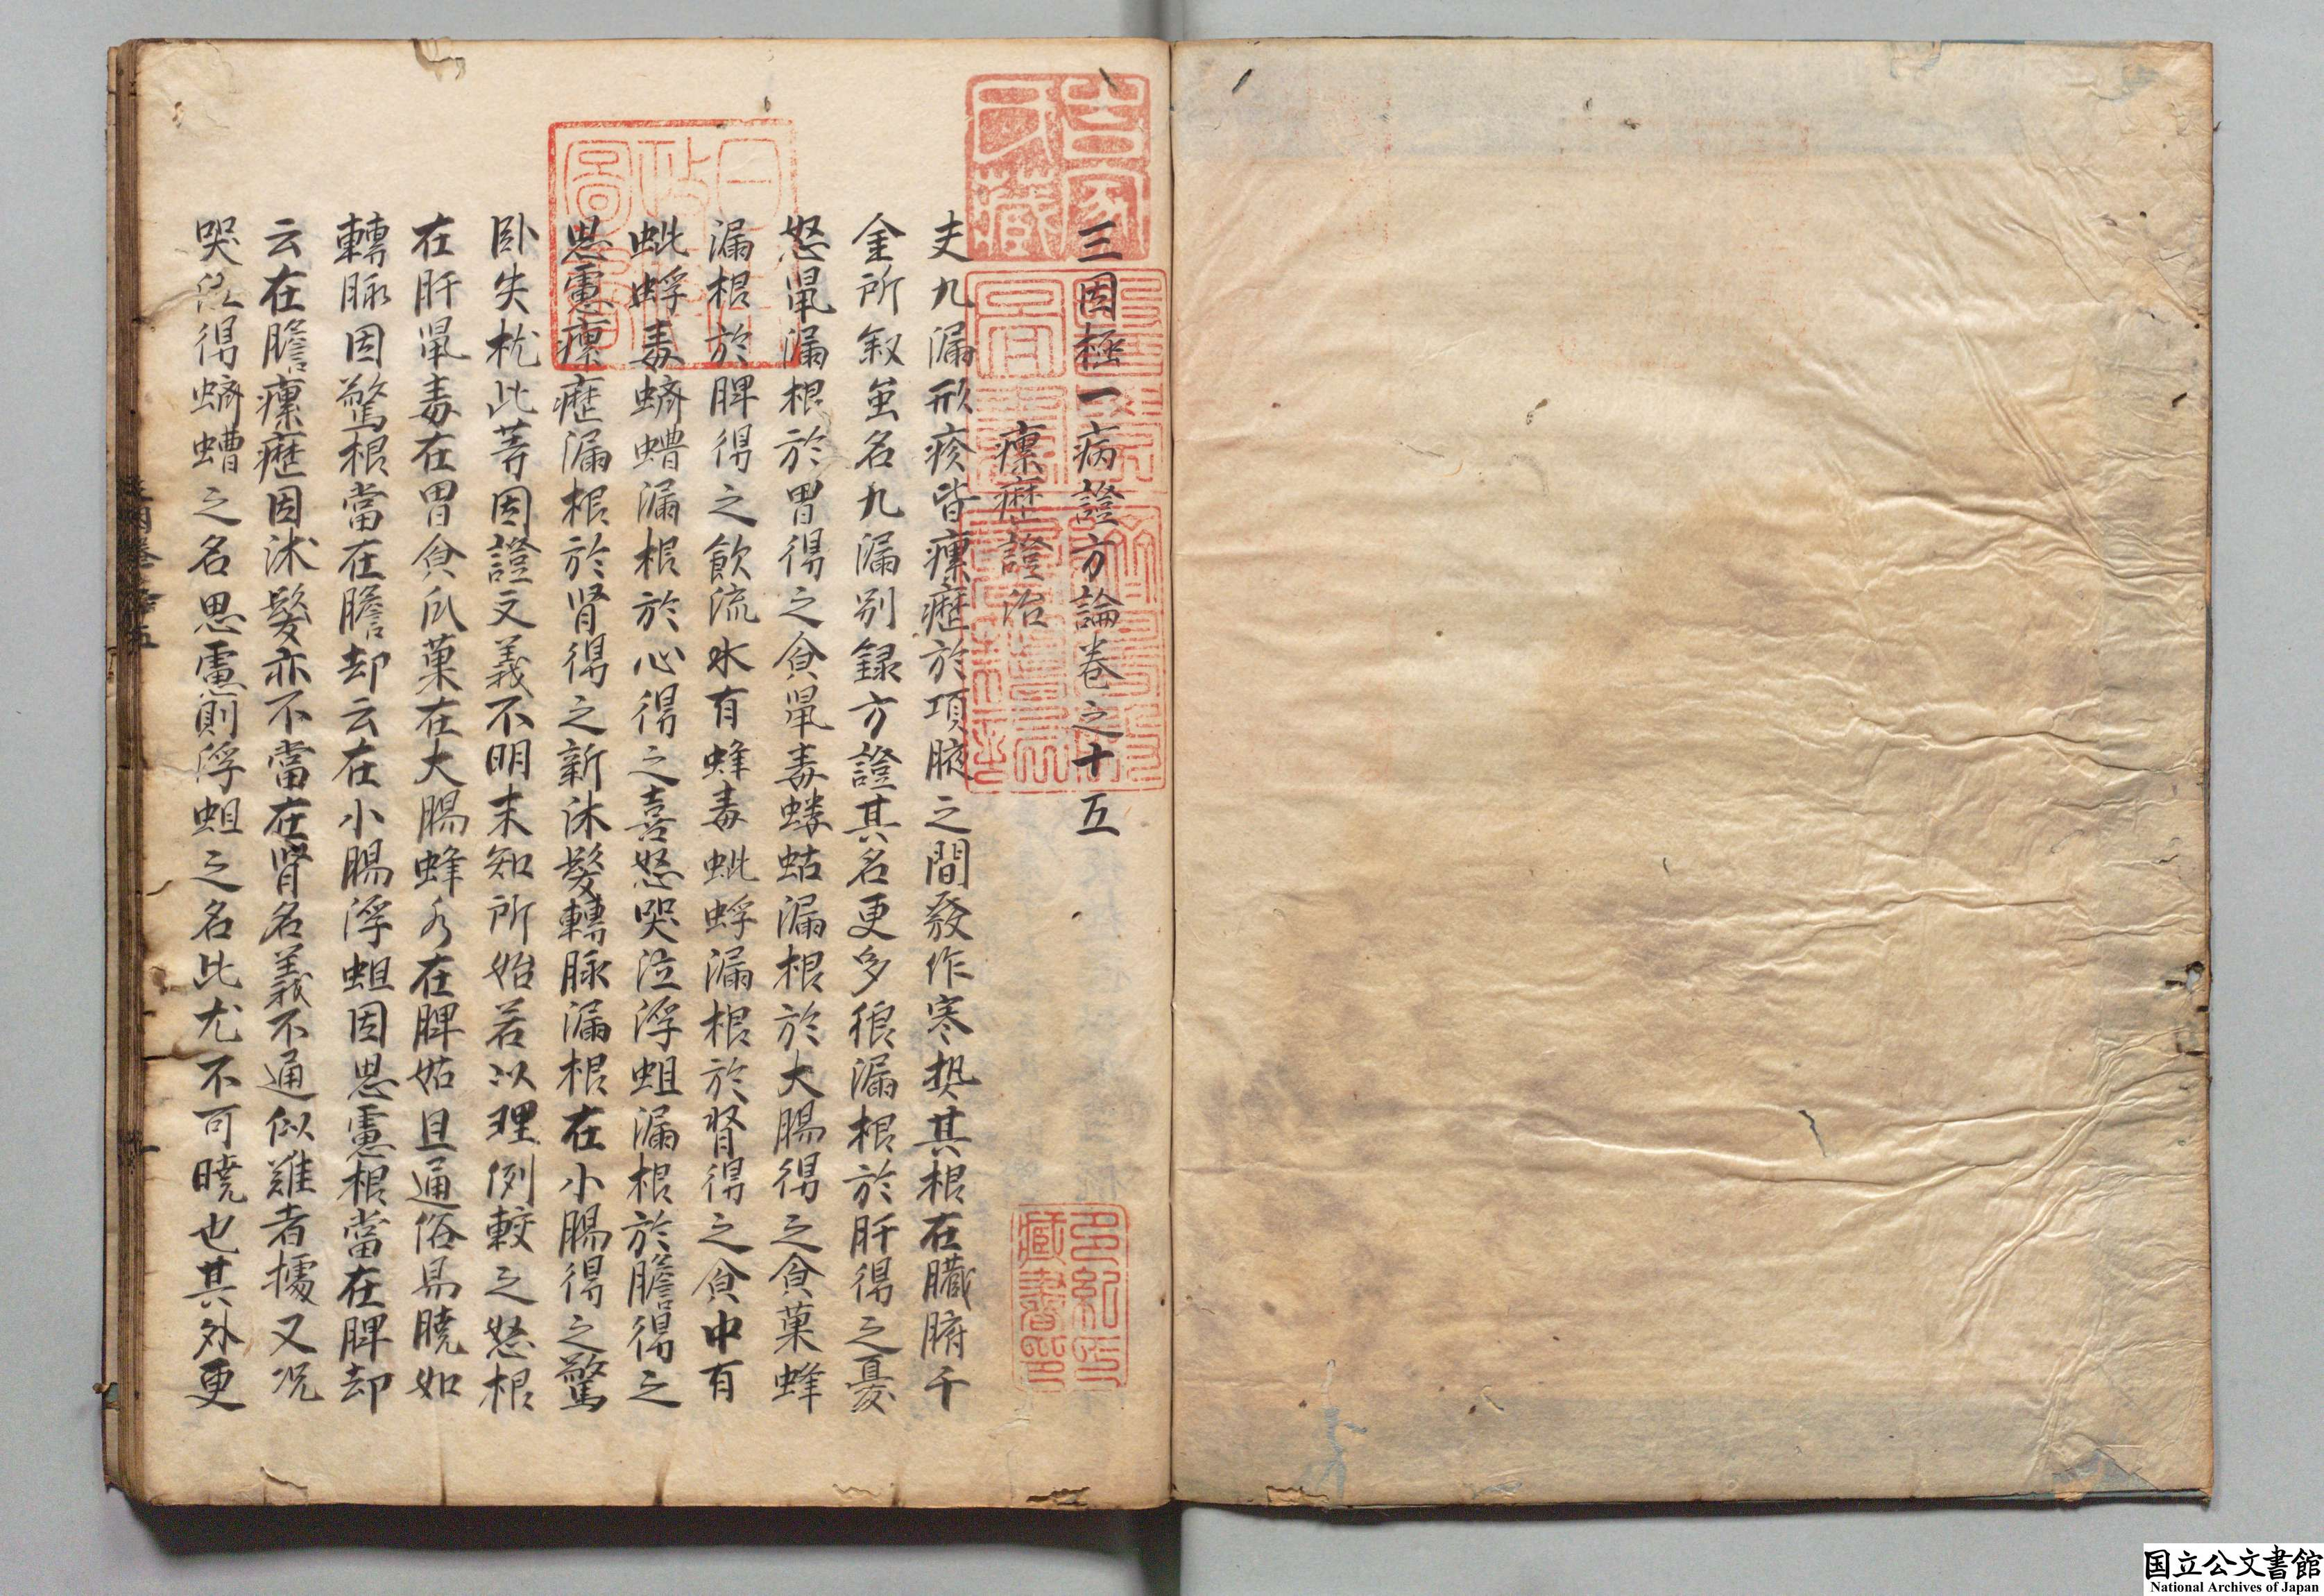 三因極一病證方論卷之十五
瘰癧證治
夫九漏形疹皆瘰癧於項腋之間發作寒熱其根在臟腑千
金所叙虽名九漏別録方證其名更多狼漏根於肝得之憂
怒鼠漏根於胃得之食鼠毒螻蛄漏根於大腸得之食菓蜂
漏根於脾得之飲流水有蜂毒蚍蜉漏根於腎得之食中有
蚍蜉毒蠐螬漏根於心得之喜怒哭泣浮蛆漏根於膽得之
思慮瘰癧漏根於腎得之新沐髮轉脉漏根在小腸得之驚
卧失枕此等因證文義不明未知所始若以理例較之怒根
在肝鼠毒在胃食瓜菓在大腸蜂水在脾姑且通俗易曉如
轉脉因驚根當在膽却云在小腸浮蛆因思慮根當在脾却
云在膽瘰癧因沐髮亦不當在腎名義不通似難考據又况
哭泣得蠐螬之名思慮則浮蛆之名此尤不可曉也其外更
国立公文書館
National Archives of Japan